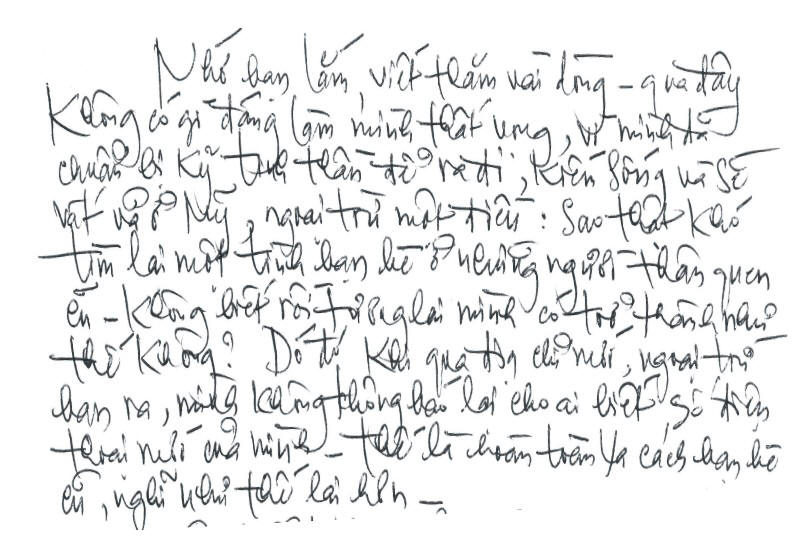 Nhớ bạn lắm, viết thăm vài dòng - qua đây
Không có gì đáng làm mình thất vọng, vì mình đã
chuẩn bị kỹ tinh thần để ra đi, kiếm sống và sẽ
vất vả ở Mỹ, ngoại trừ một điều: Sao thật khó
tìm lại một tình bạn bè ở những người thân quen
cũ - Không biết rồi tương lai mình có trở thành như
thế không? Do đó Khi qua địa chỉ mới, ngoại trừ
bạn ra, mình không thông báo lại cho ai biết số điện
thoại mới của mình - thế là hoàn toàn xa cách bạn bè
cũ, nghĩ như thế lại hơn -